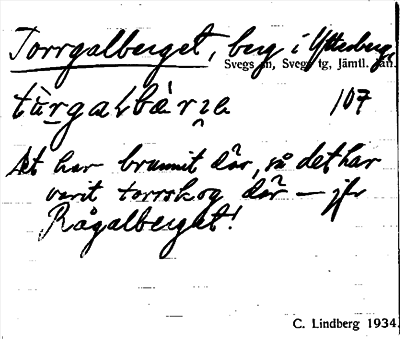 Torrgalberget, berg i Ytterberg,
Svegs sn, Svegs tg, Jämtl. län.
107
Det har brunnit där, så det har
varit torrskog där – jfr
Rågalberget!
C. Lindberg 1934.